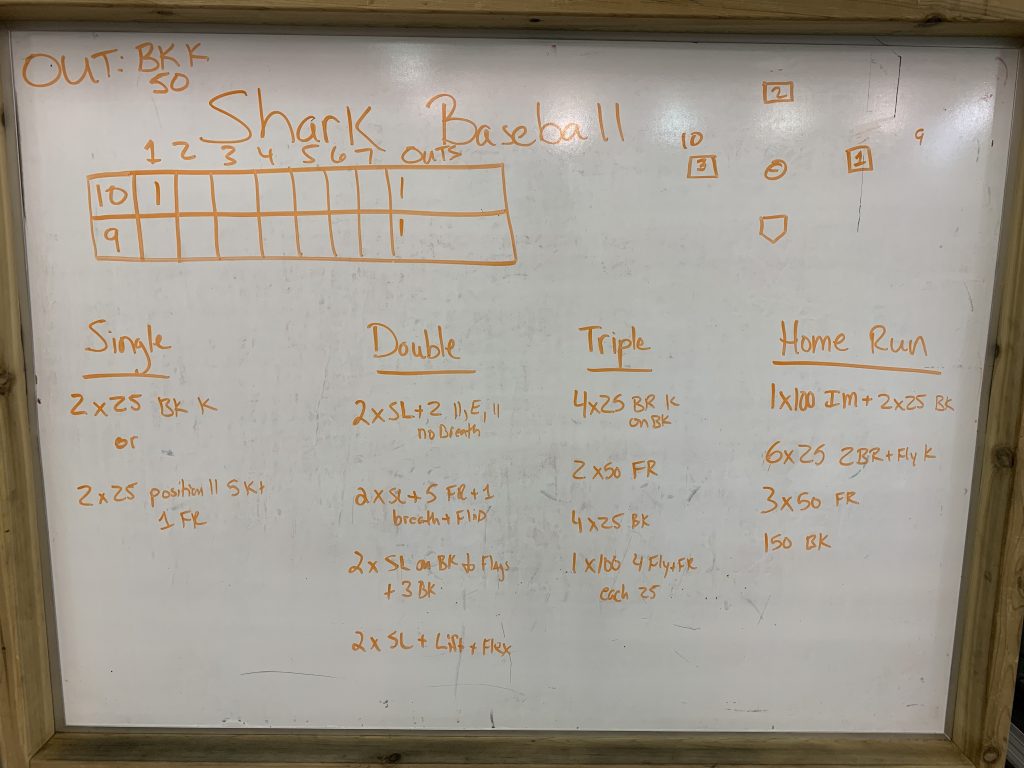 OUT: BK K
50
Shark Baseball
1 2 3 4 5 6 7 OUTS
10 1 1
9 1
2
10 9
3 1
Single
2 x 25 BK K
or
2 x 25 position 11 5 K+
1 FR
Double
2 x SL + 2 11, E, 11
no Breath
2 x SL + 5 FR + 1
breath + Flip
2 x SL on BK to Flags
+ 3 BK
2 x SL + Lift + Flex
Triple
4x25 BR K
on BK
2 x50 FR
4 x25 BK
1 x100 4 Fly+FR
each 25
Home Run
1x100 IM + 2x25 BK
6x25 2BR+Fly K
3x50 FR
150 BK